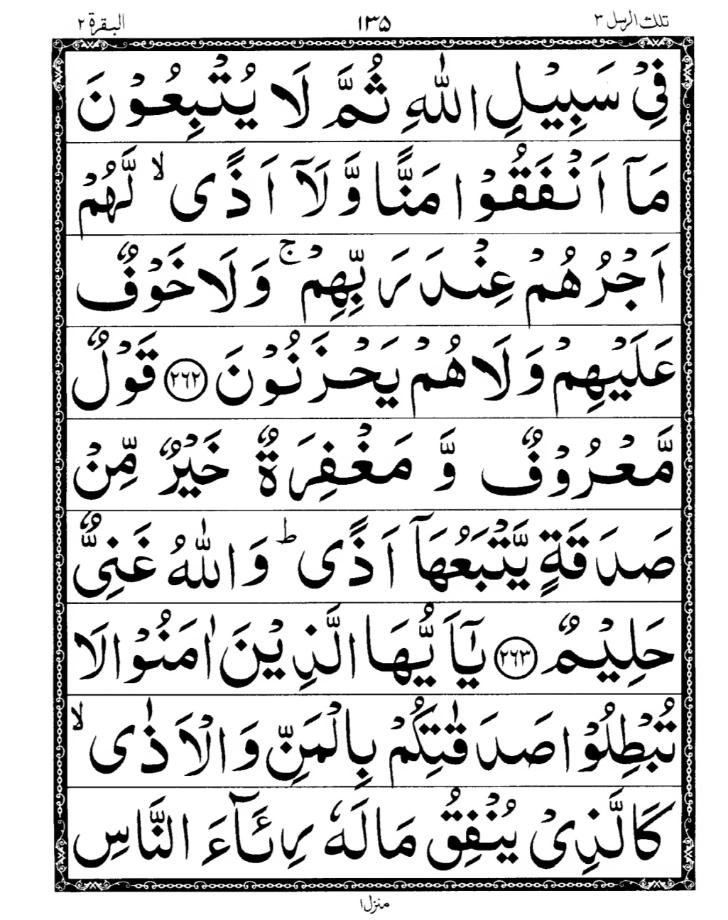 تلك الرسل ٣
١٣٥
البقرة ٢
فِیْ سَبِیْلِ اللّٰهِ ثُمَّ لَا یُتْبِعُوْنَ
مَاۤ اَنْفَقُوْا مَنًّا وَّلَاۤ اَذًی ۙ لَّهُمْ
اَجْرُهُمْ عِنْدَ رَبِّهِمْ ۚ وَلَا خَوْفٌ
عَلَیْهِمْ وَلَا هُمْ یَحْزَنُوْنَ ﴿٢٦٢﴾ قَوْلٌ
مَّعْرُوْفٌ وَّ مَغْفِرَةٌ خَیْرٌ مِّنْ
صَدَقَةٍ یَّتْبَعُهَاۤ اَذًی ؕ وَاللّٰهُ غَنِیٌّ
حَلِیْمٌ ﴿٢٦٣﴾ یٰۤاَیُّهَا الَّذِیْنَ اٰمَنُوْا لَا
تُبْطِلُوْا صَدَقٰتِكُمْ بِالْمَنِّ وَالْاَذٰی ۙ
كَالَّذِیْ یُنْفِقُ مَالَهٗ رِئَآءَ النَّاسِ
منزل ١